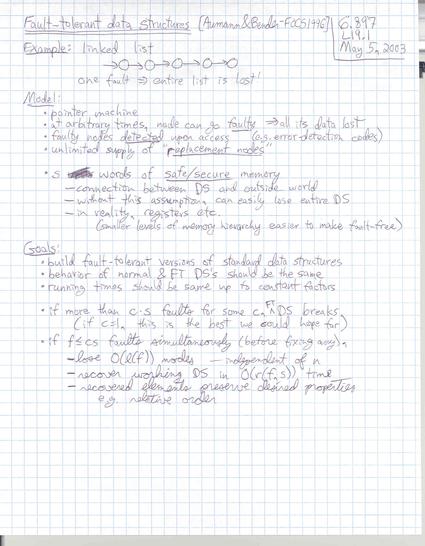 Fault-tolerant data structures [Aumann & Bender - FOCS 1996]
6.897
L19.1
May 5, 2003
Example: linked list
one fault ⇒ entire list is lost!
Model:
• pointer machine
• at arbitrary times, node can go faulty ⇒ all its data lost
• faulty nodes detected upon access (e.g. error-detection codes)
• unlimited supply of "replacement nodes"
• s words of safe/secure memory
— connection between DS and outside world
— without this assumption, can easily lose entire DS
— in reality, registers etc.
(smaller levels of memory hierarchy easier to make fault-free)
Goals:
• build fault-tolerant versions of standard data structures
• behavior of normal & FT DS's should be the same
• running times should be same up to constant factors
• if more than c·s faults for some c, FT DS breaks
(if c=1, this is the best we could hope for)
• if f ≤ cs faults simultaneously (before fixing any),
— lose O(l(f)) nodes — independent of n
— recover working DS in O(r(f,s)) time
— recovered elements preserve desired properties
e.g. relative order